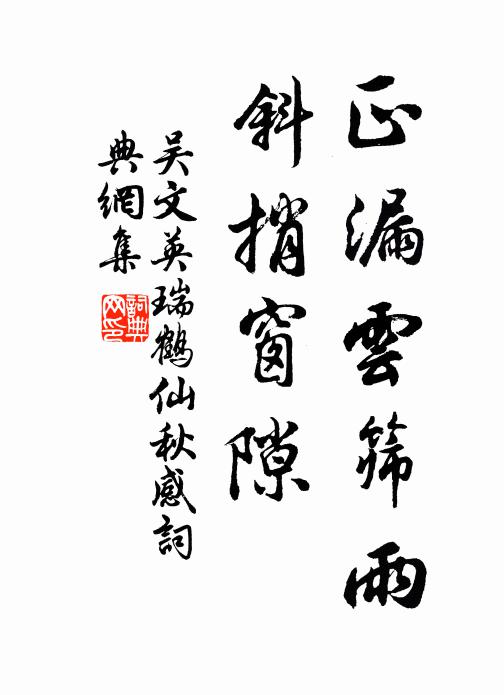 正漏雲篩雨
斜捎窗隙
吴文英瑞鶴仙秋感詞
典網集
詞典網印